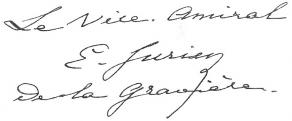 Le Vice. Amiral
E. Jurien
de la Gravière.